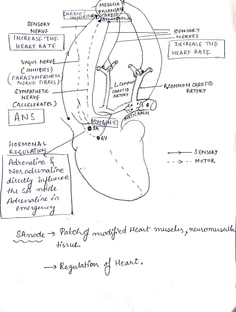 MEDULLA
OBLONGATA
CARDIO
SENSORY
NERVE
INCREASE THE
HEART RATE
VAGUS NERVE
(INHIBITS)
(PARASYMPATHETIC
NERVE FIBRES)
SYMPATHETIC
NERVE
(ACCELERATES)
ANS
SENSORY
NERVES
DECREASE THE
HEART RATE.
L. COMMON
CAROTID
ARTERY
R. COMMON CAROTID
ARTERY
HORMONAL
REGULATION
Adrenaline &
Noradrenaline
directly influence
the SA node
Adrenaline in
emergency
SA
AV
SENSORY
MOTOR
SA node → Patch of modified Heart muscles, neuromuscular
tissue.
→ Regulation of Heart.